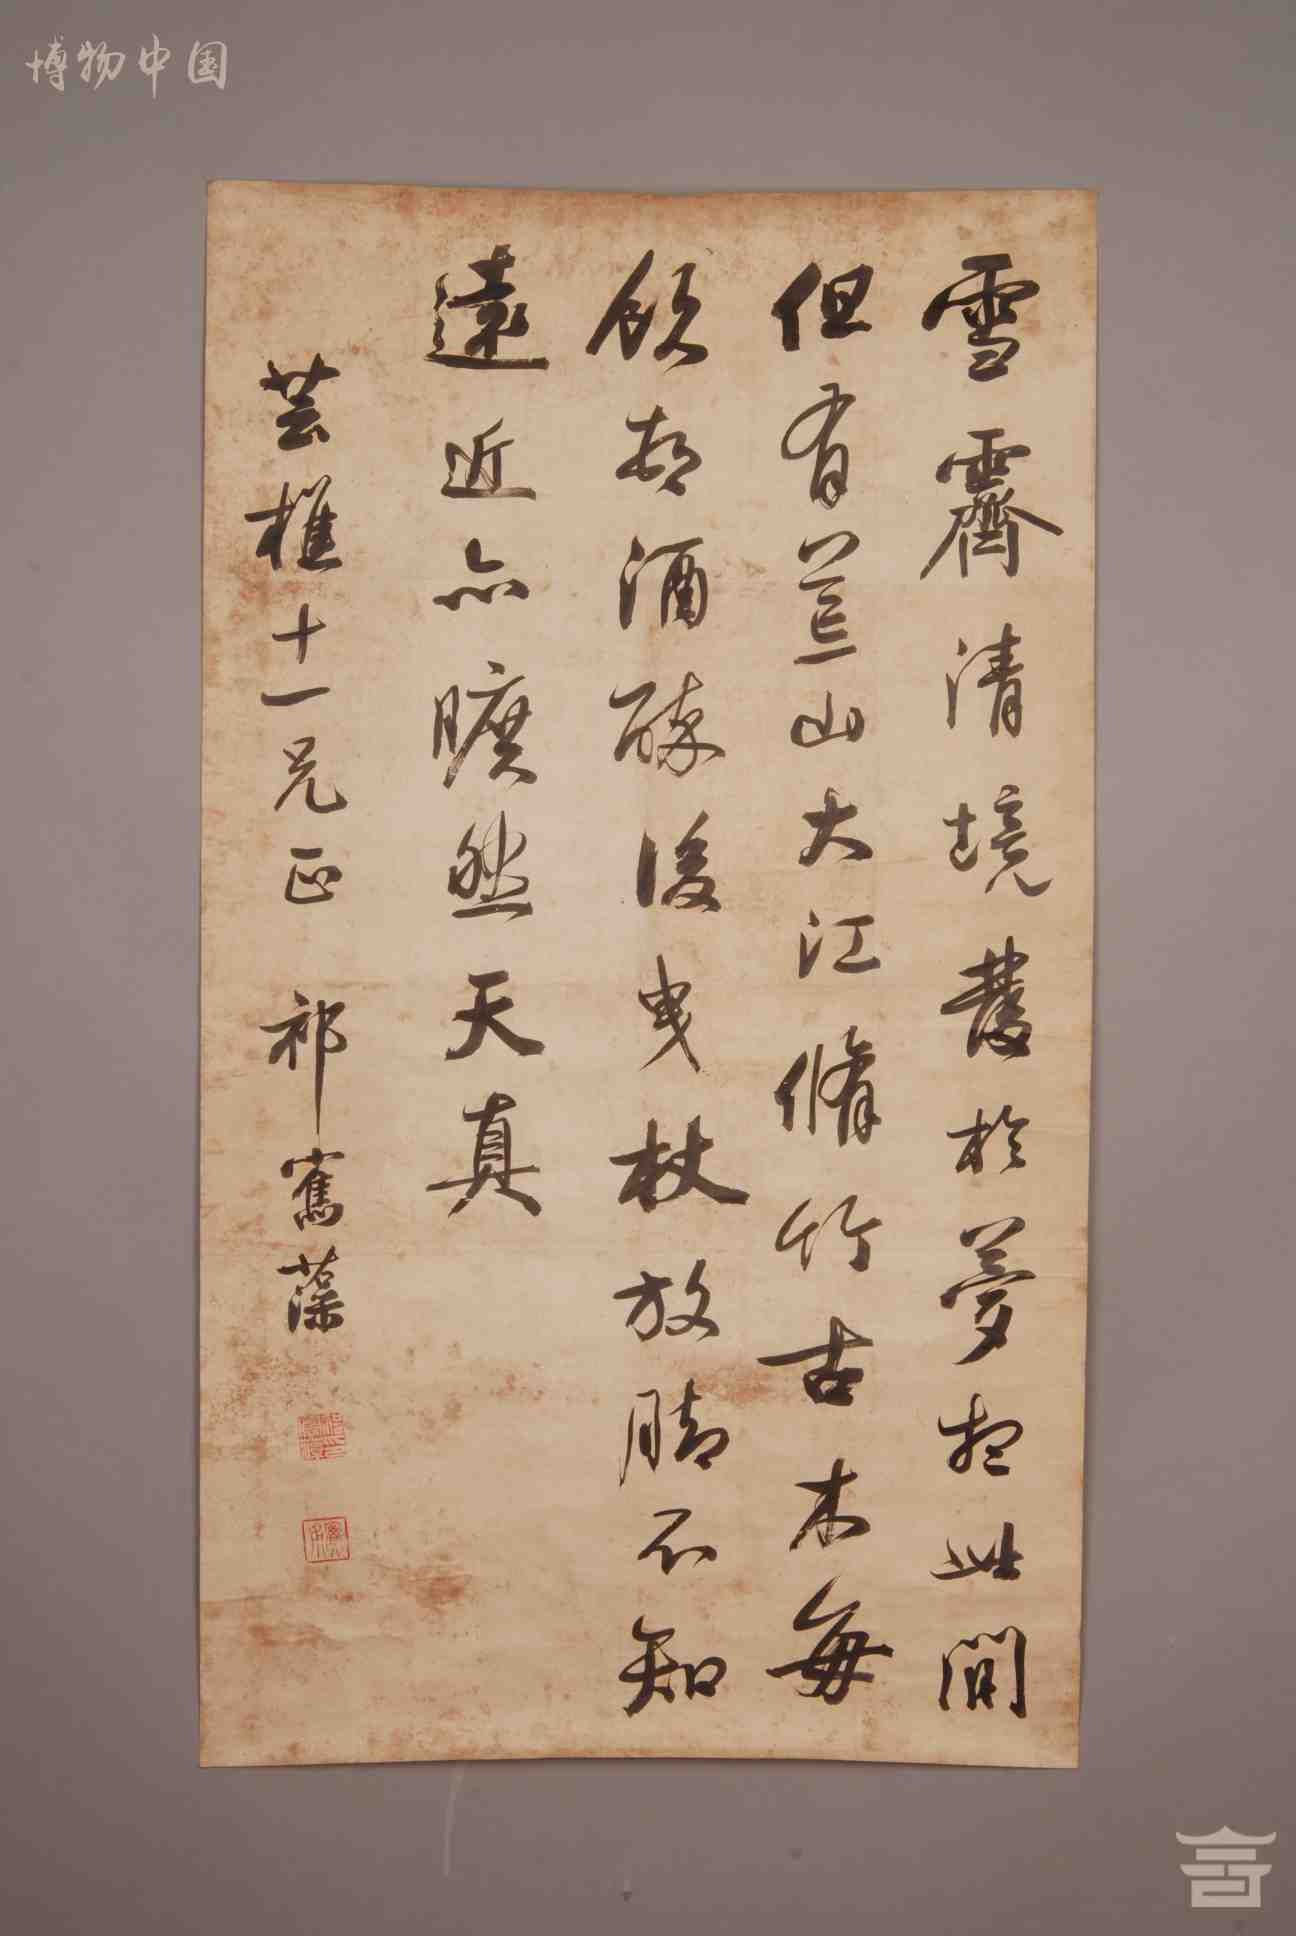 雪霽清境發於夢想此間
但有荒山大江脩竹古木每
飲村酒醉後曳杖放腳不知
遠近亦曠然天真
芸樵十一兄正 祁寯藻
博物中国